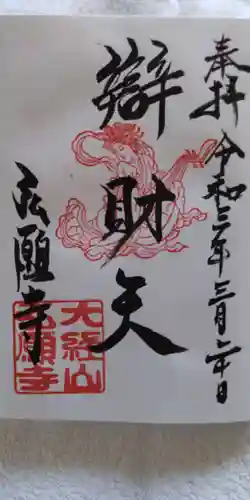 奉拝 令和三年三月二十日
辯財天
弘願寺
大経山
弘願寺